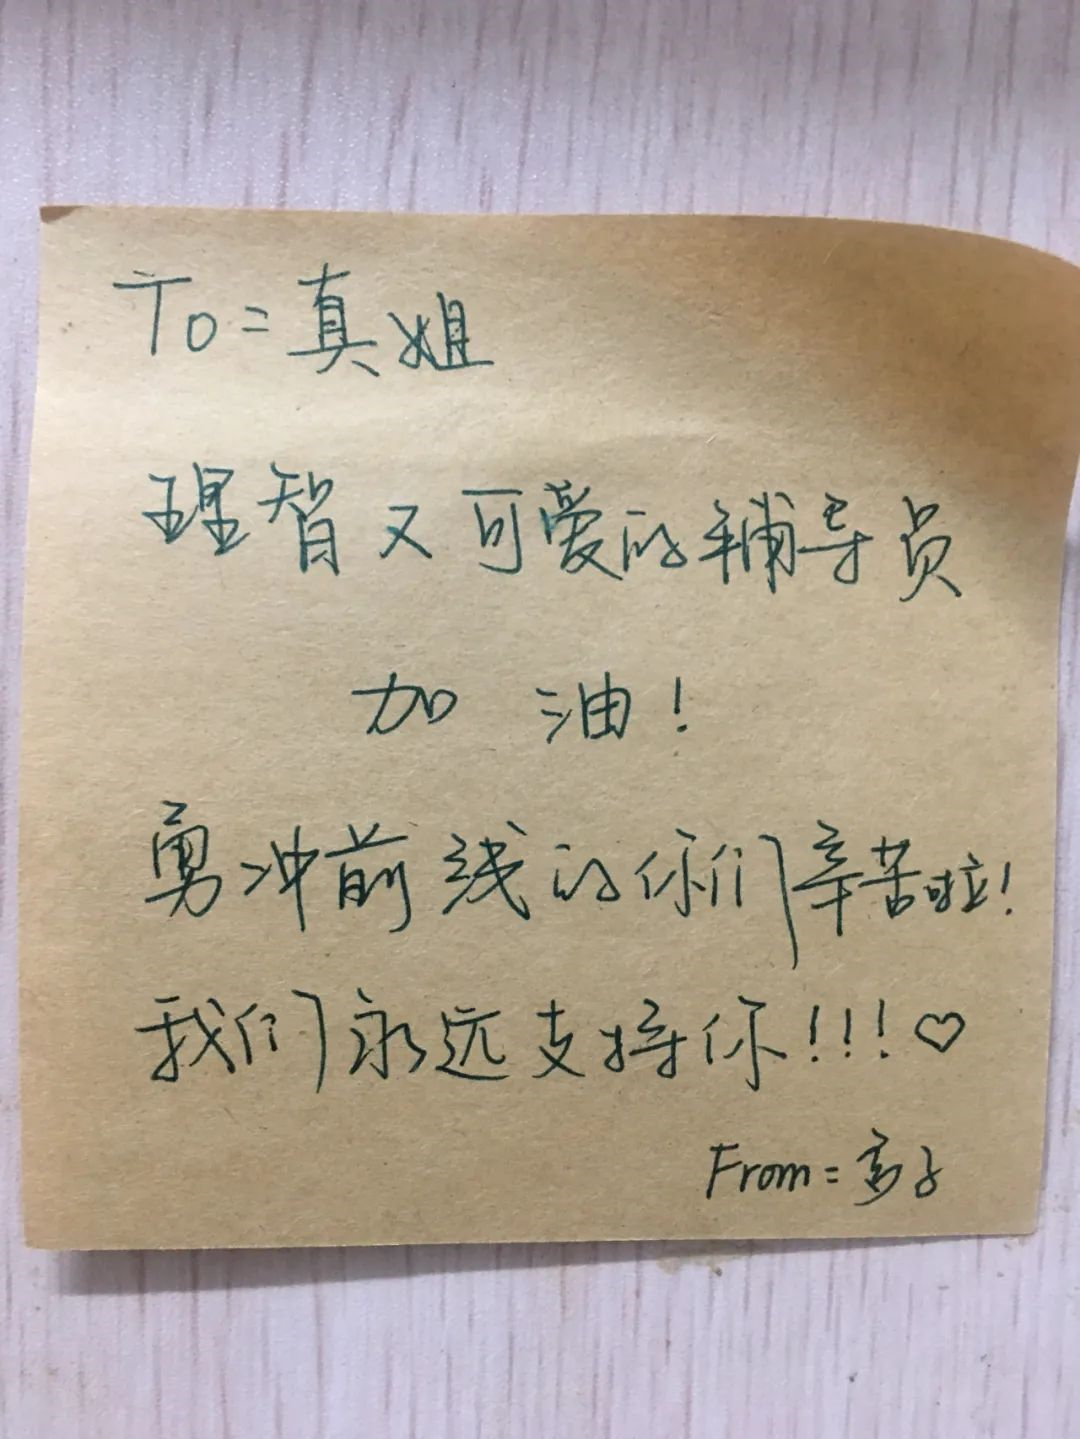 To=真姐
理智又可爱的辅导员
加油!
勇冲前线的你们辛苦啦!
我们永远支持你!!!♡
From=高子